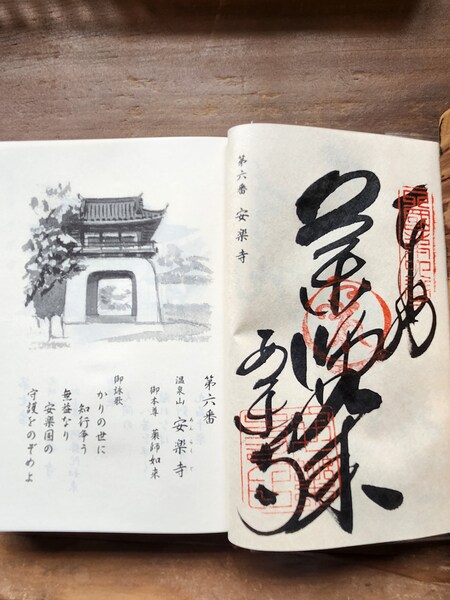 薬師如来
安楽寺
第六番 安楽寺
第六番
温泉山 安楽寺
御本尊 薬師如来
御詠歌
かりの世に
知行争う
無益なり
安楽国の
守護をのぞめよ